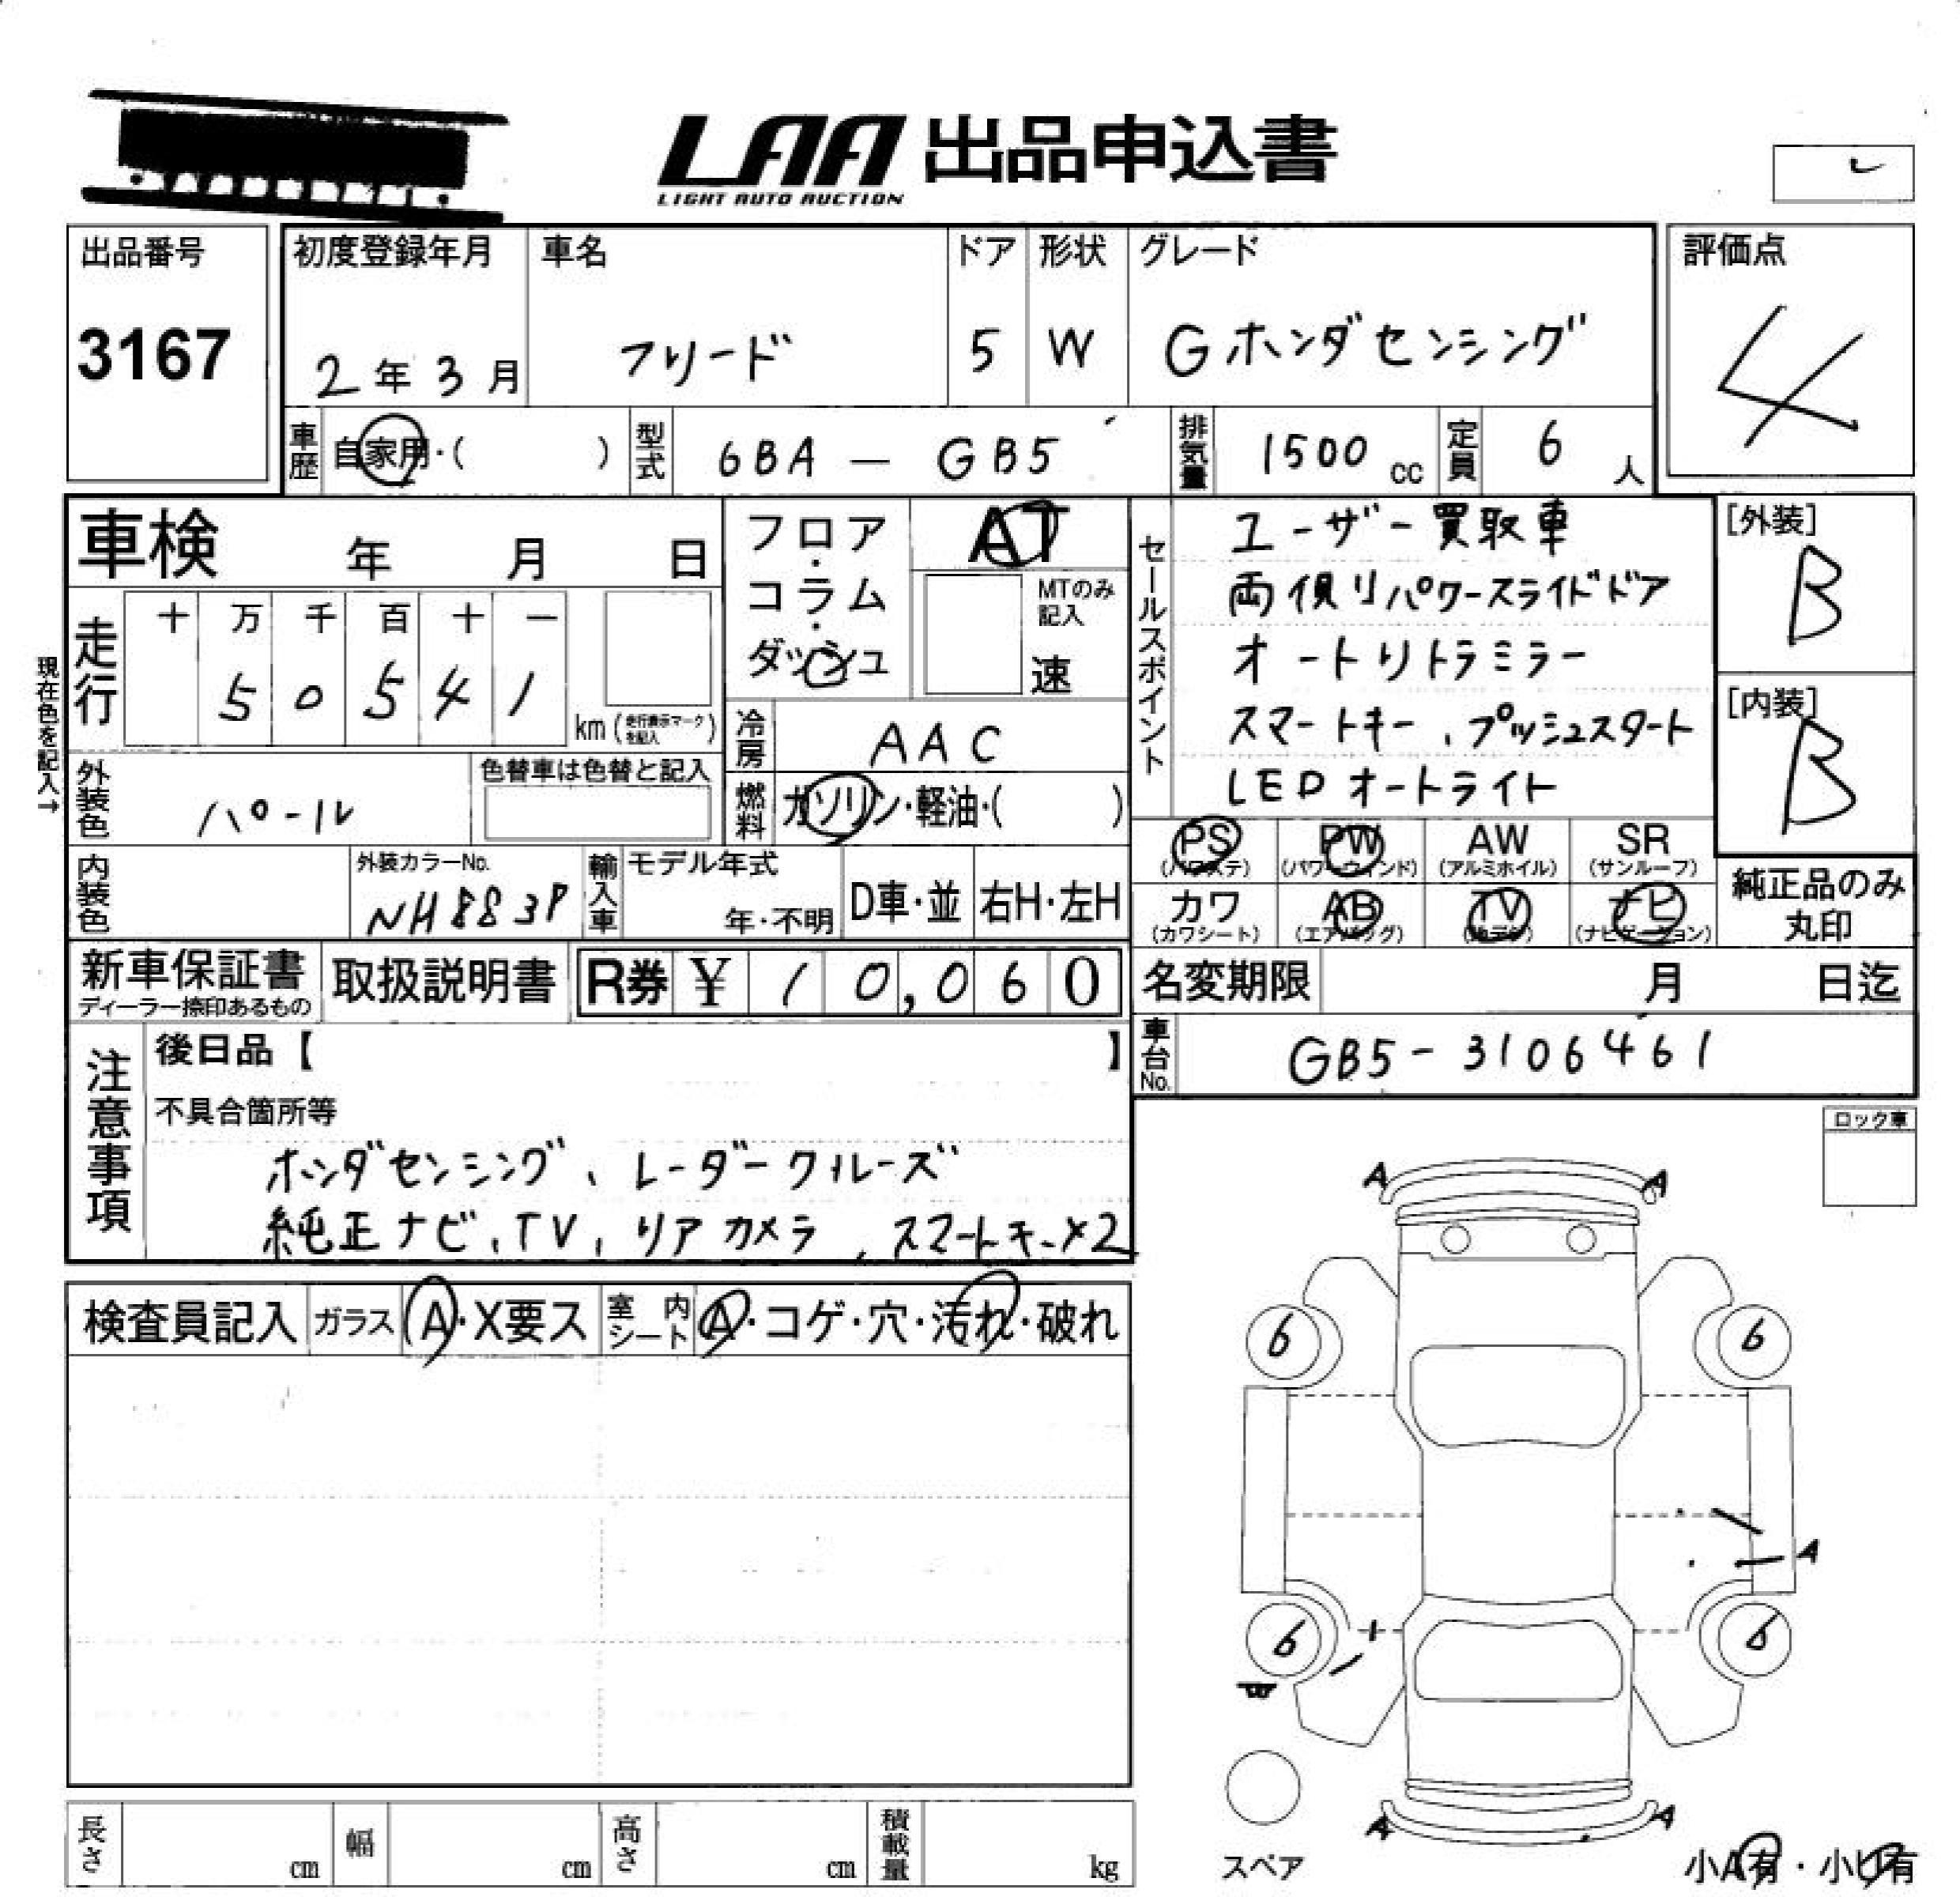 LAA 出品申込書
LIGHT AUTO AUCTION
出品番号
3167
初度登録年月
2年3月
車名
フリード
ドア
5
形状
W
グレード
Gホンダセンシング
評価点
4
車歴
自家用・( )
型式
6BA — GB5
排気量
1500 cc
定員
6 人
車検 年 月 日
フロア・コラム・ダッシュ
AT
MTのみ記入
速
セールスポイント
ユーザー買取車
両側リパワースライドドア
オートリトラミラー
スマートキー、プッシュスタート
LEDオートライト
[外装]
B
[内装]
B
現在色を記入→
走行
十 万 千 百 十 一
5 0 5 4 1
km (走行表示マークを記入)
冷房
AAC
燃料
ガソリン・軽油・( )
外装色
パール
色替車は色替と記入
内装色
外装カラーNo.
NH883P
輸入車
モデル年式
年・不明
D車・並
右H・左H
PS (パワステ)
PW (パワーウィンド)
AW (アルミホイル)
SR (サンルーフ)
カワ (カワシート)
AB (エアバッグ)
TV
ナビ (ナビゲーション)
純正品のみ丸印
新車保証書
ディーラー捺印あるもの
取扱説明書
R券 ¥ 10,060
名変期限 月 日迄
車台No.
GB5-3106461
注意事項
後日品【 】
不具合箇所等
ホンダセンシング、レーダークルーズ
純正ナビ、TV、リアカメラ、スマートキー×2
ロック車
検査員記入
ガラス
A・X要ス
室内シート
A・コゲ・穴・汚れ・破れ
A A
6 6
A
6 6
W
A A
スペア
小A有・小U有
長さ cm
幅 cm
高さ cm
積載量 kg